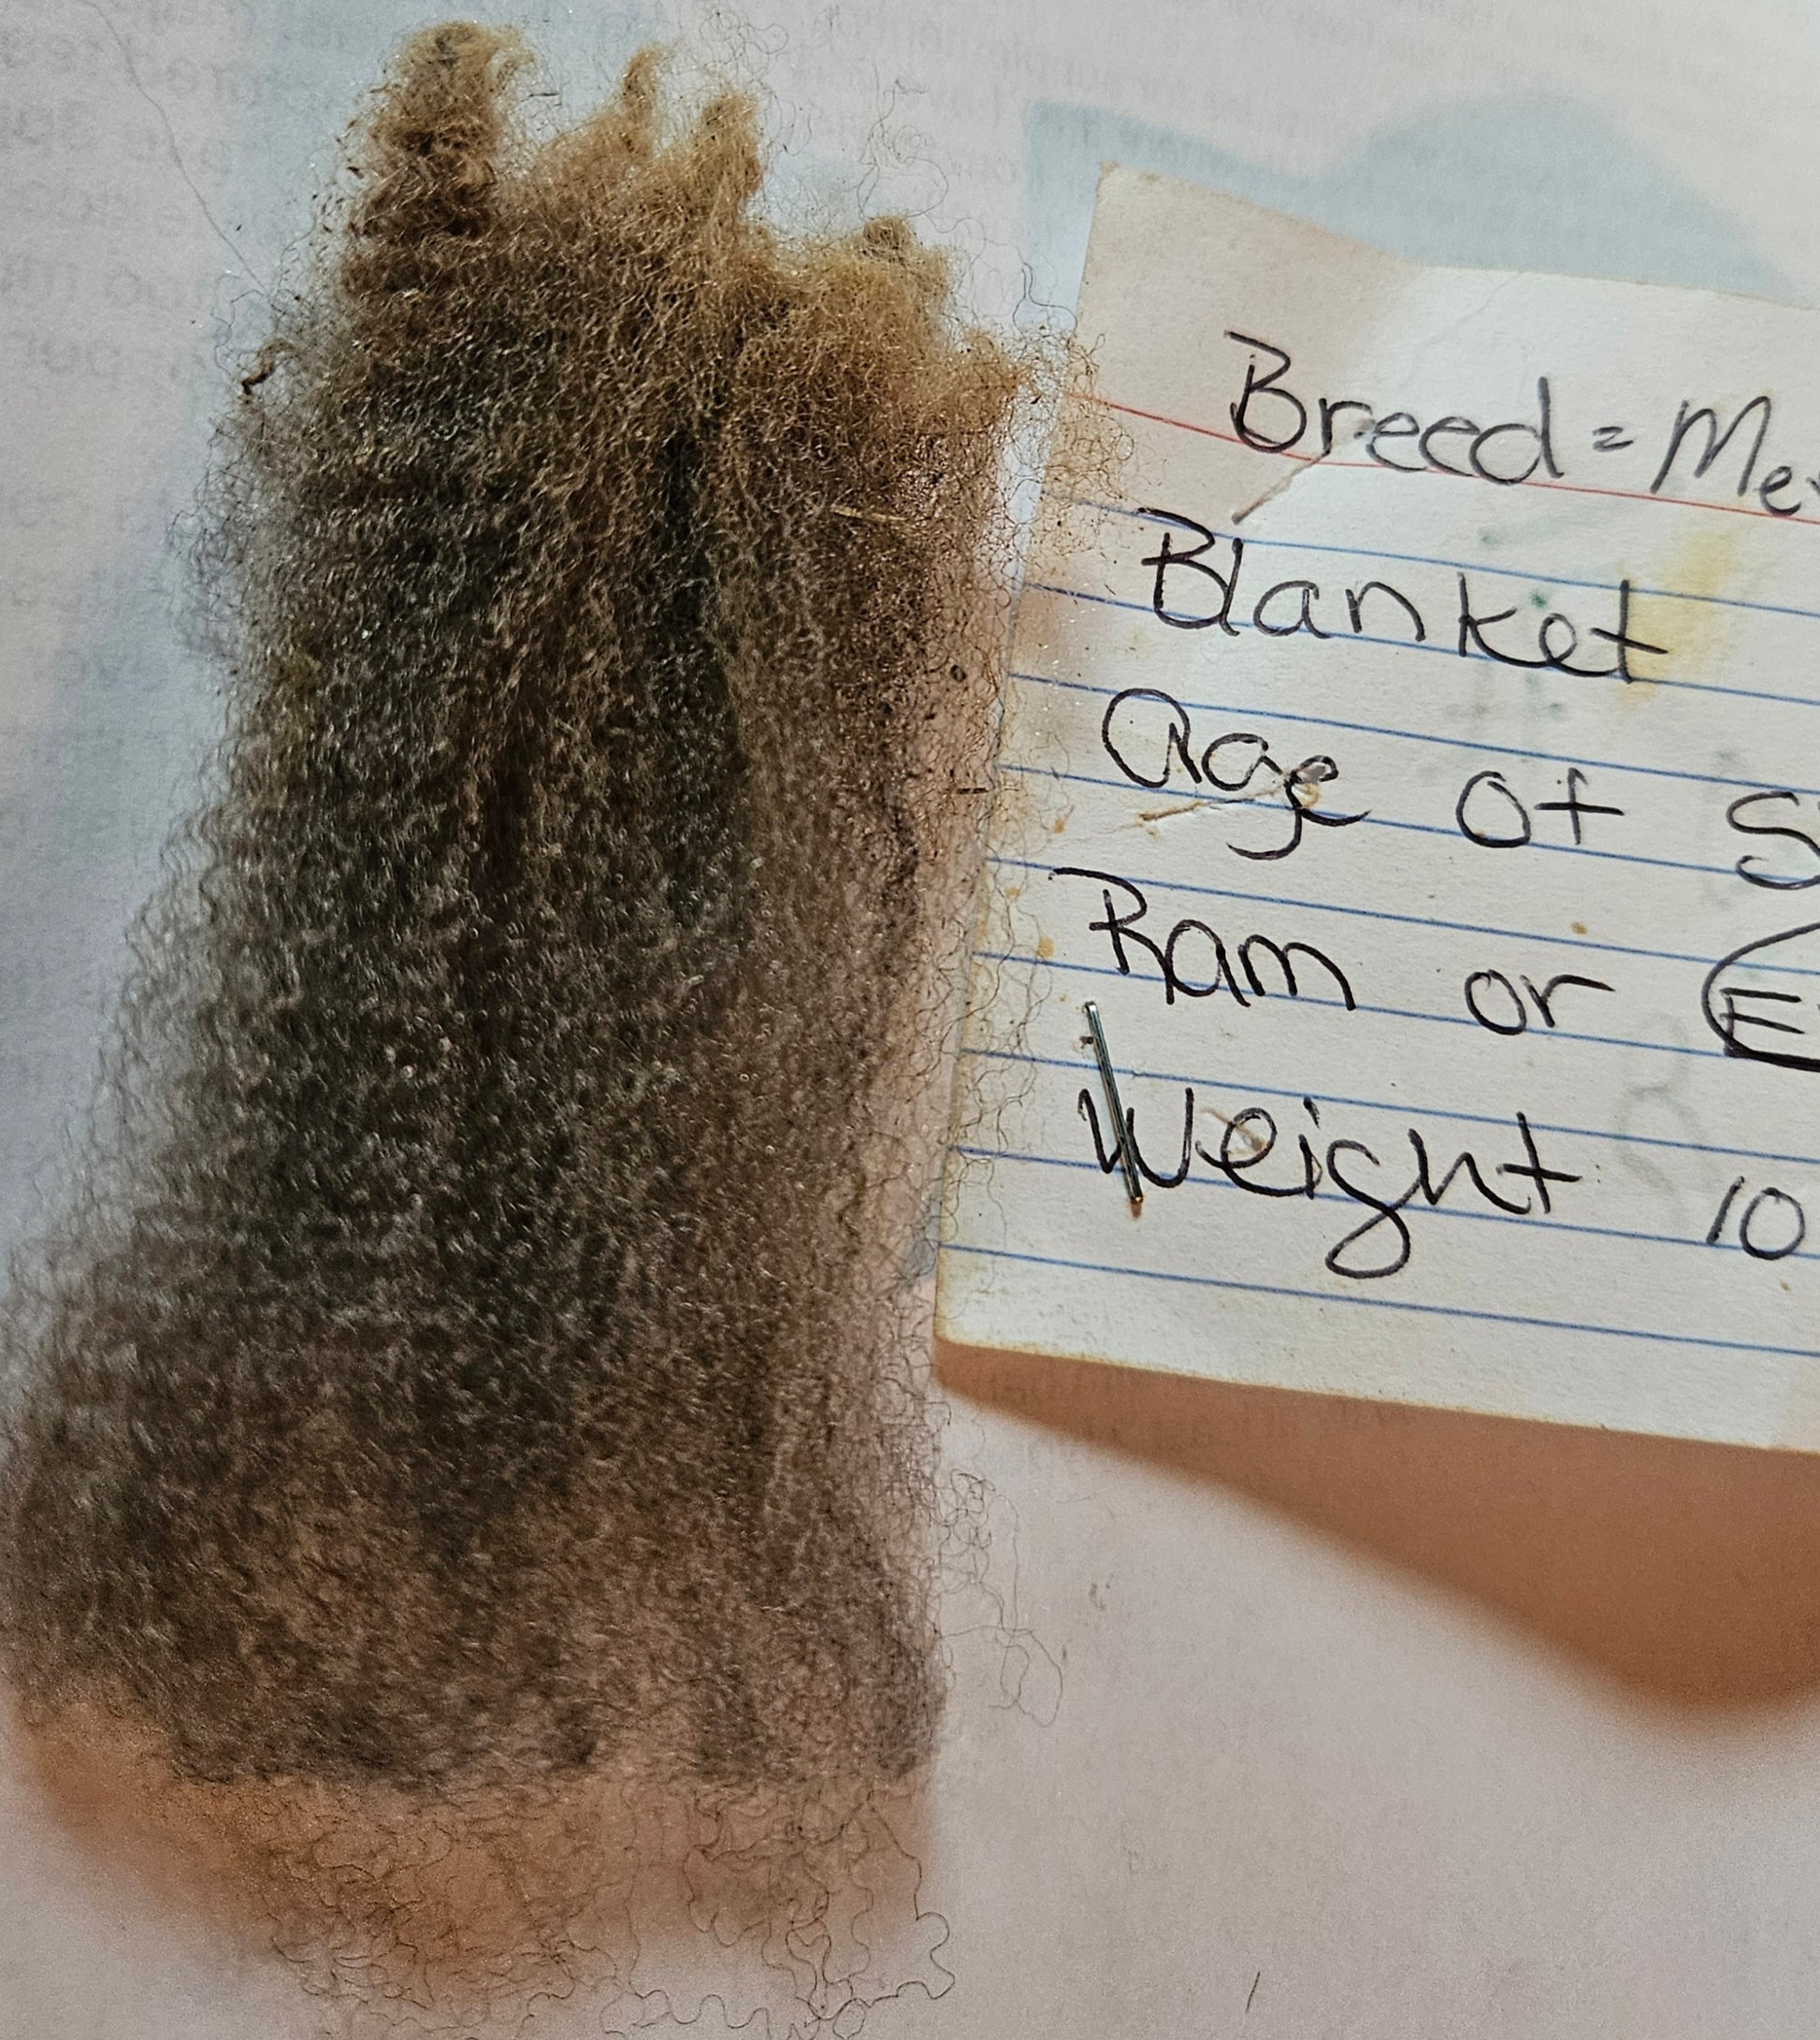 Breed = Me
Blanket
Age of S
Ram or E
Weight 10